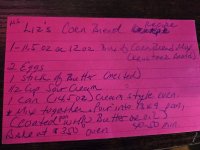 Liz's Corn Bread Recipe
1- 11.5 oz or 12 oz Corn Bread Mix
2 Eggs
1 stick of Butter (melted)
1/2 Cup Sour Cream
1 can (14.5 oz) cream style corn.
* Mix together & pour into 13x9 pan,
(coated with Butter or oil)
Bake at 350 oven 50 min.